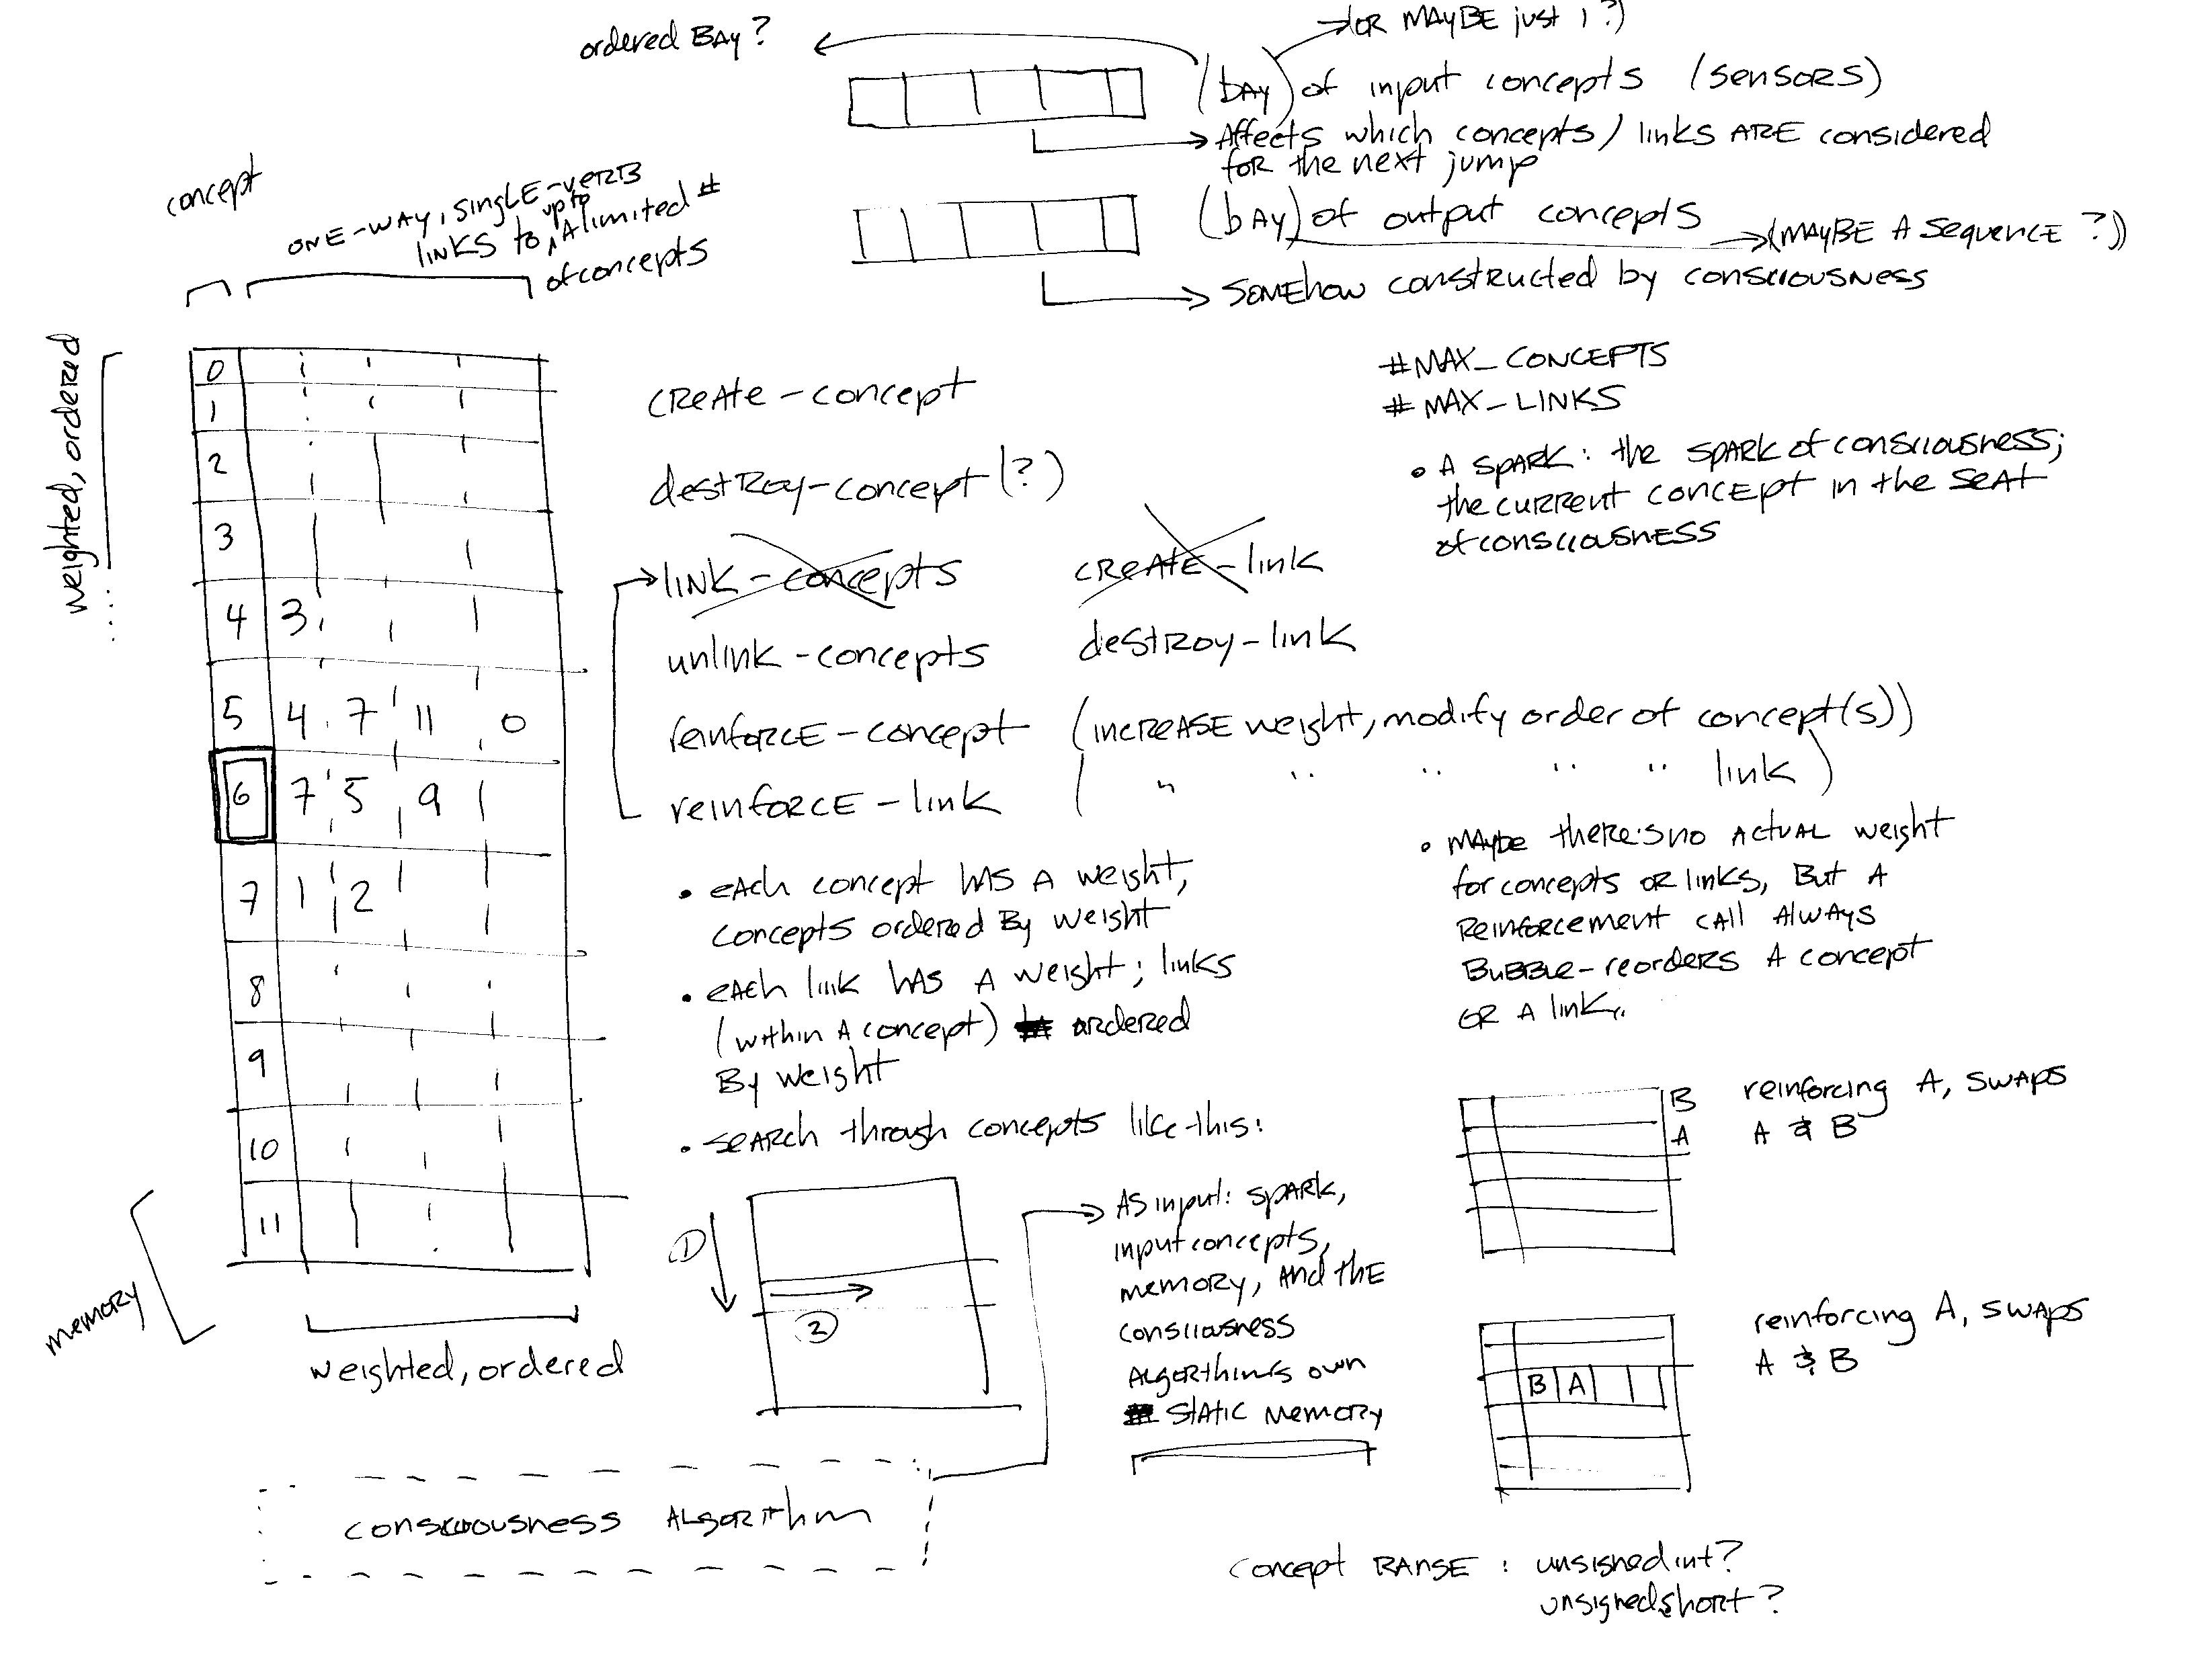 ordered BAy?
(OR MAYBE just 1?)
(bAy) of input concepts (sensors)
Affects which concepts/links ARE considered
for the next jump
(bAy) of output concepts
(MAYBE A sequence?))
somehow constructed by consciousness
concept
ONE-WAY, SINGLE-VERB
LINKS to up to A limited #
of concepts
weighted, ordered
0
1
2
3
4 3
5 4 7 11 0
6 7 5 9
7 1 2
8
9
10
11
memory
weighted, ordered
create-concept
destroy-concept(?)
link-concepts
create-link
unlink-concepts
destroy-link
reinforce-concept (increase weight, modify order of concept(s))
reinforce-link ( " " " " " link)
#MAX_CONCEPTS
#MAX_LINKS
• A SPARK: the SPARK of consciousness;
the current concept in the seat
of consciousness
• each concept has a weight,
concepts ordered by weight
• each link has a weight; links
(within a concept) ordered
by weight
• search through concepts like this:
1
2
• maybe there's no actual weight
for concepts or links, but a
reinforcement call always
bubble-reorders a concept
or a link.
B
A
reinforcing A, swaps
A & B
B A
reinforcing A, swaps
A & B
As input: spark,
input concepts,
memory, and the
consciousness
algorithm's own
static memory
consciousness algorithm
concept range: unsigned int?
unsigned short?